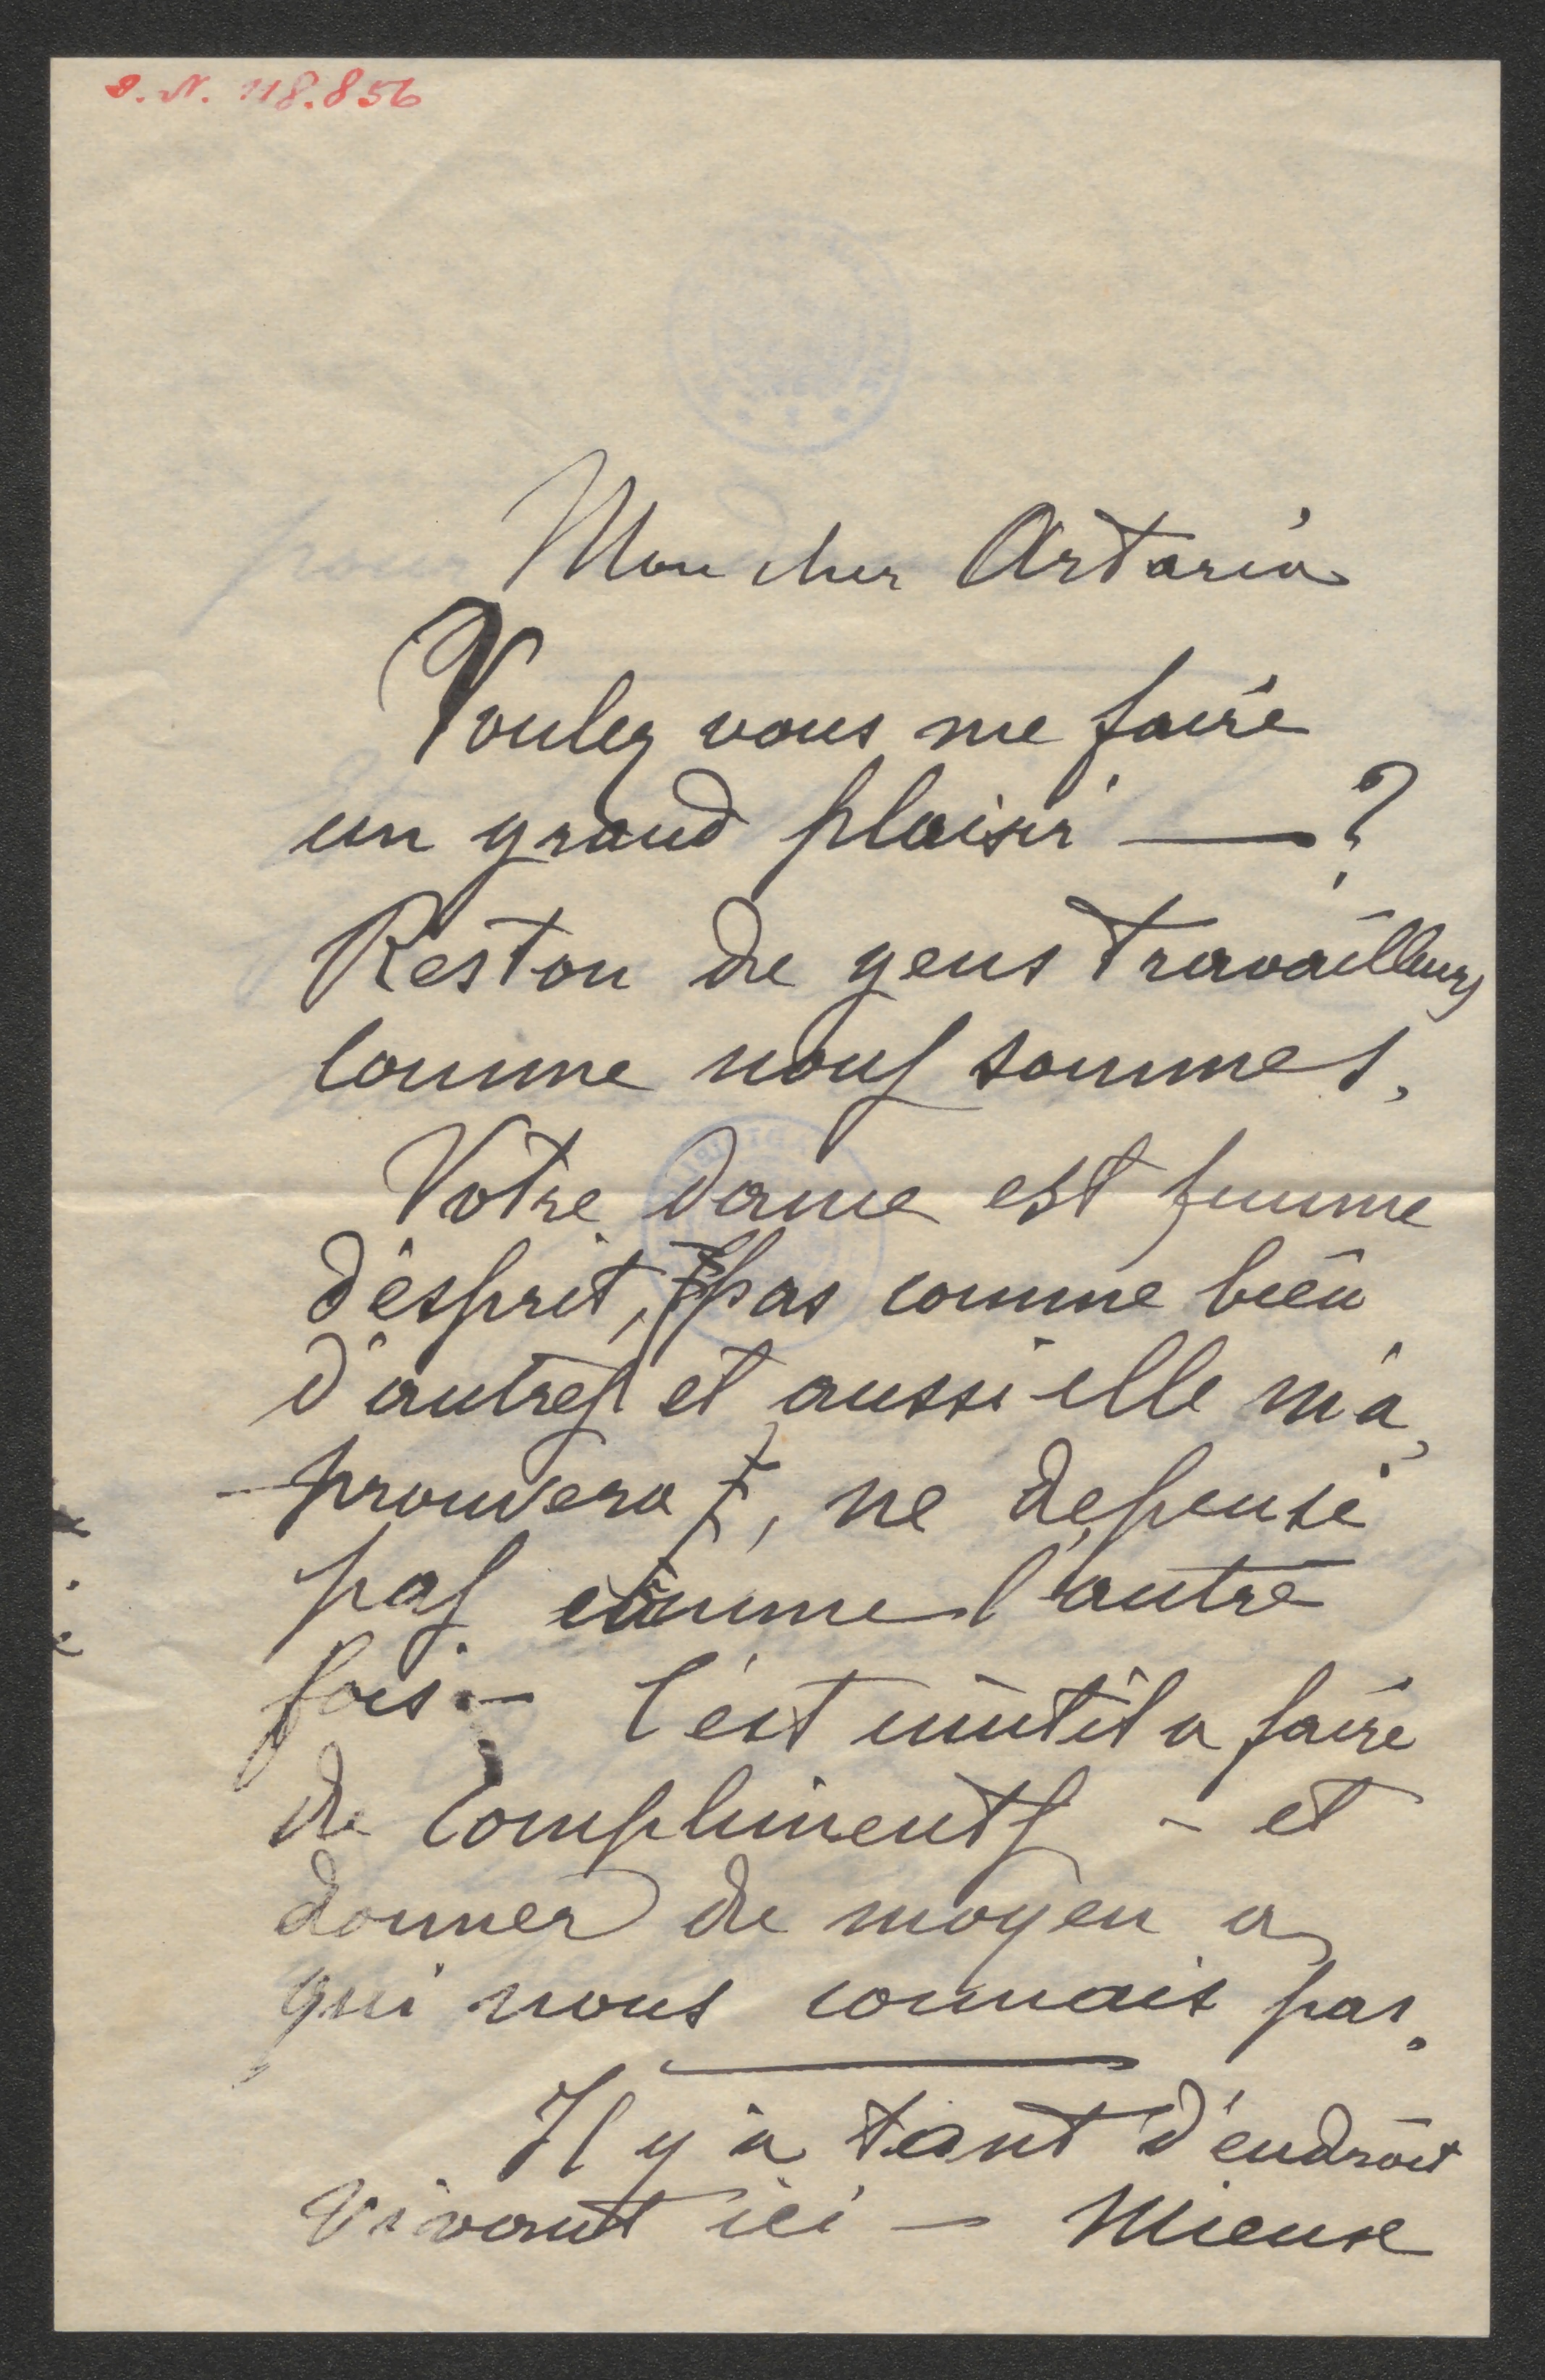 J. N. 118.856
Mon cher Artaria
Voulez vous me faire
un grand plaisir — ?
Reston de gens travailleurs
comme nous sommes,
Votre dame est femme
d'esprit, pas comme bien
d'autres et aussi elle m'a,
-prouvera, ne depense
pas comme l'autre
fois — C'est inutil a faire
de compliments - et
donner de moyen a
qui nous connais pas.
Il y a tant d'endroit
vivant ici — Mieux